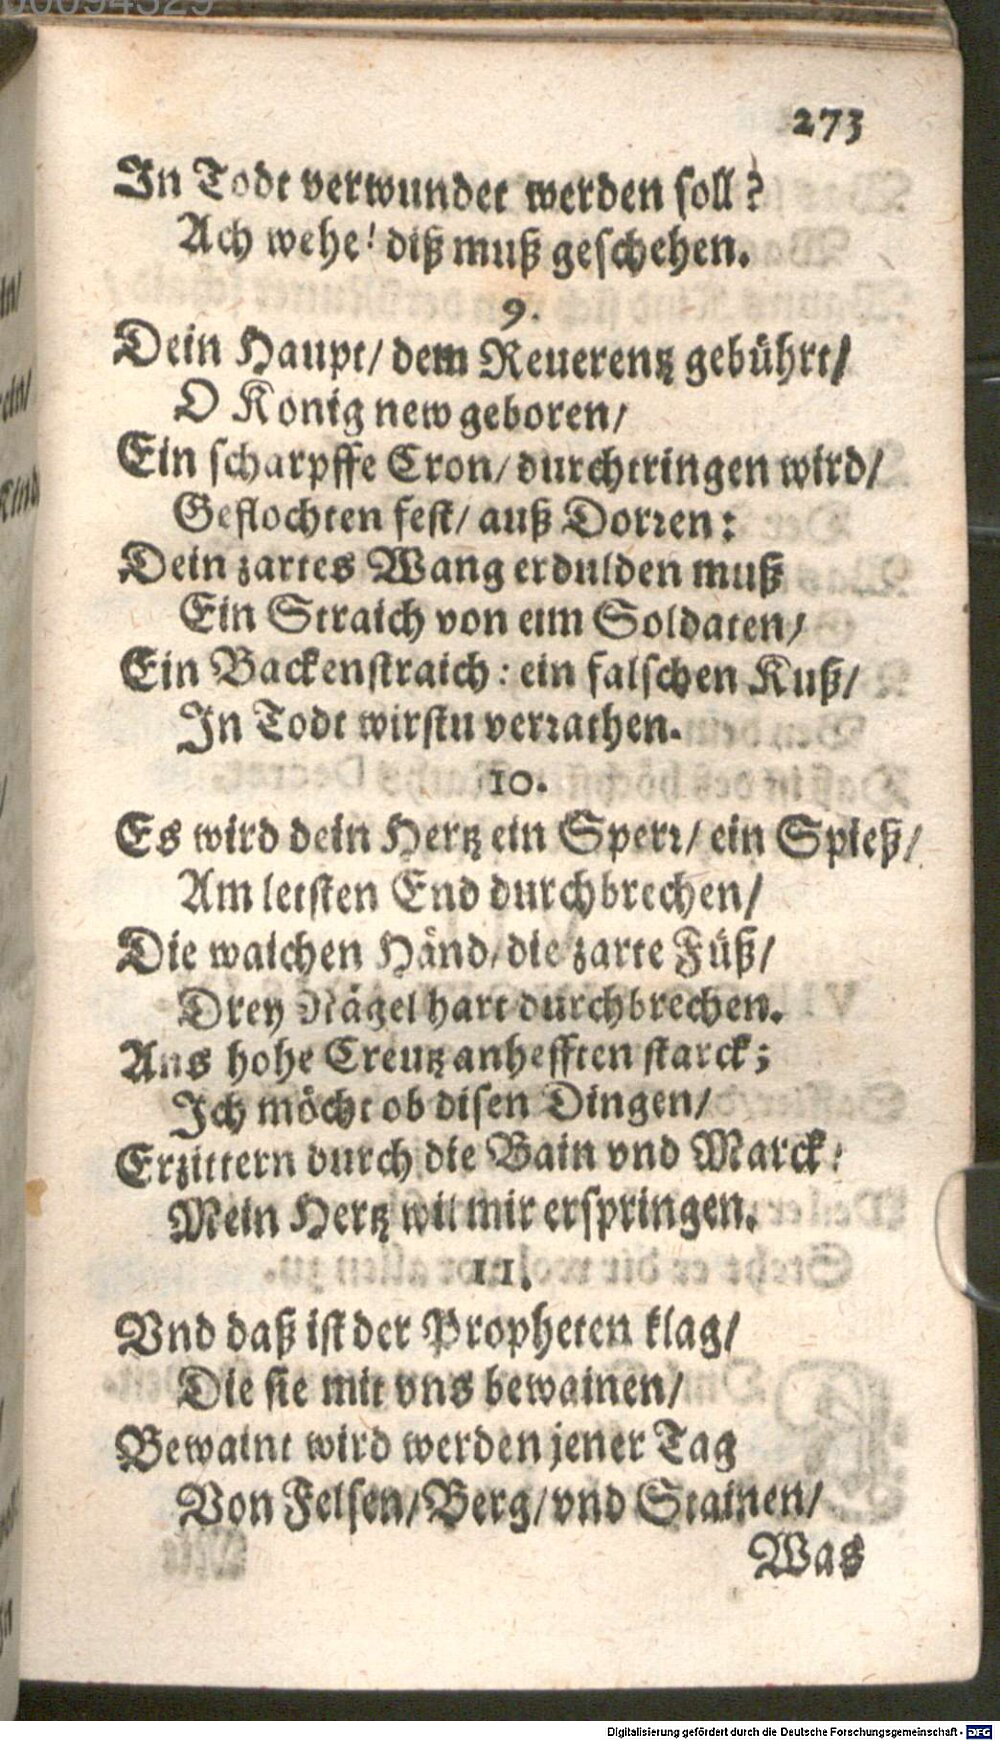 273
In Todt verwundet werden soll?
Ach wehe! diß muß geschehen.
9.
Dein Haupt/ dem Reuerentz gebührt/
O Konig new geboren/
Ein scharpffe Cron/ durchtringen wird/
Geflochten fest/ auß Dorꝛen:
Dein zartes Wang erdulden muß
Ein Straich von eim Soldaten/
Ein Backenstraich: ein falschen Kuß/
In Todt wirstu verꝛathen.
10.
Es wird dein Hertz ein Sperꝛ/ ein Spieß/
Am letsten End durchbrechen/
Die waichen Händ, die zarte Füß/
Drey Nägel hart durchbrechen.
Ans hohe Creutz anhefften starck;
Ich möcht ob disen Dingen/
Erzittern durch die Bain vnd Marck:
Mein Hertz wil mir erspringen.
11.
Vnd daß ist der Propheten klag/
Die sie mit vns bewainen/
Bewaint wird werden jener Tag
Von Felsen/ Berg/ vnd Stainen/
Was
Digitalisierung gefördert durch die Deutsche Forschungsgemeinschaft - DFG